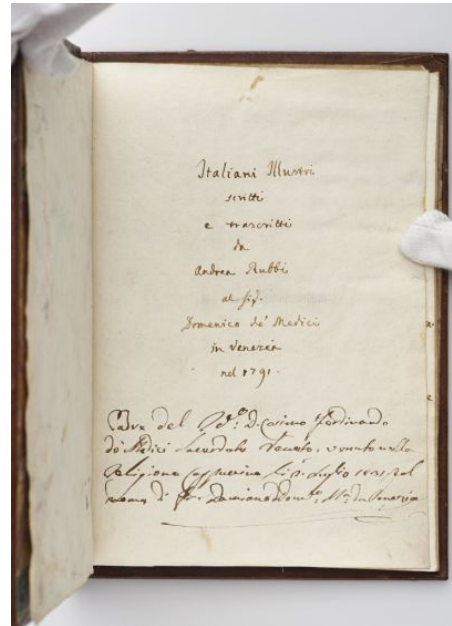 Italiani Illustri
scritti
e trascritti
da
Andrea Rubbi
al Sig.
Domenico de' Medici
in Venezia
nel 1791.
del D. Cosimo Ferdinando
de' Medici Sacerdote Veneto, venuto nella
Religione Cappuccina li Luglio
di Fra Damiano da Venezia